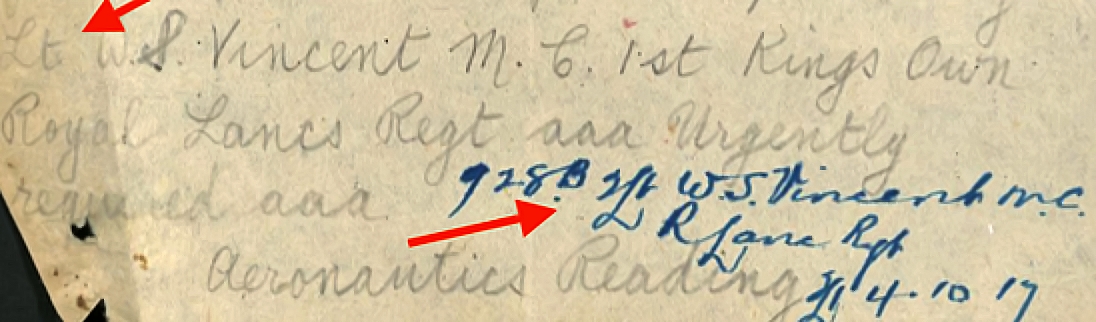 Lt W.S. Vincent M.C. 1st Kings Own
Royal Lancs Regt aaa Urgently
required aaa
928.B 2/Lt W.S. Vincent M.C.
R Lanc Regt
Aeronautics Reading
4.10.17